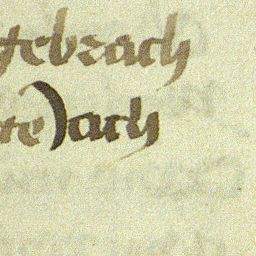 gebrach
te) ach